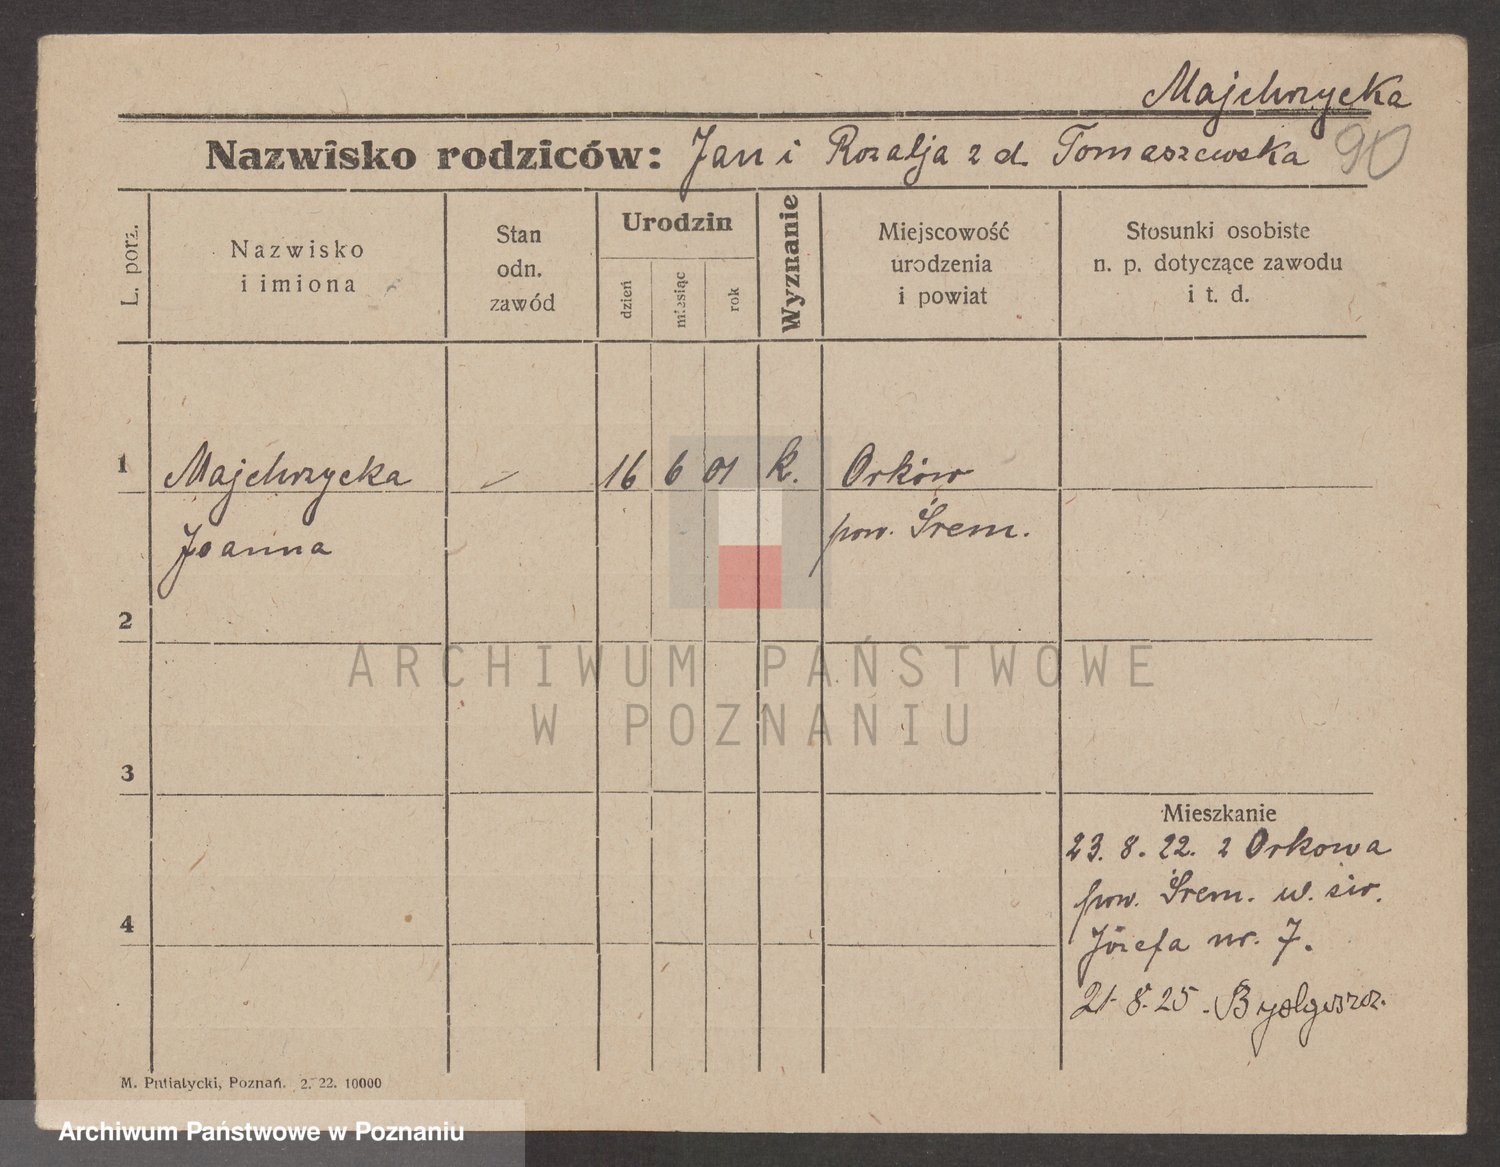 Majchrzycka
Nazwisko rodziców: Jan i Rozalja z d. Tomaszewska 90
L. porz.
Nazwisko
i imiona
Stan
odn.
zawód
Urodzin
dzień
miesiąc
rok
Wyznanie
Miejscowość
urodzenia
i powiat
Stosunki osobiste
n. p. dotyczące zawodu
i t. d.
1 Majchrzycka 16 6 01 k. Orków
Joanna pow. Śrem.
2
ARCHIWUM PAŃSTWOWE
W POZNANIU
3
Mieszkanie
23. 8. 22. z Orkowa
pow. Śrem. ul. św.
4
Józefa nr. 7.
21. 8. 25 - Bydgoszcz.
M. Putiatycki, Poznań. 2. 22. 10000
Archiwum Państwowe w Poznaniu